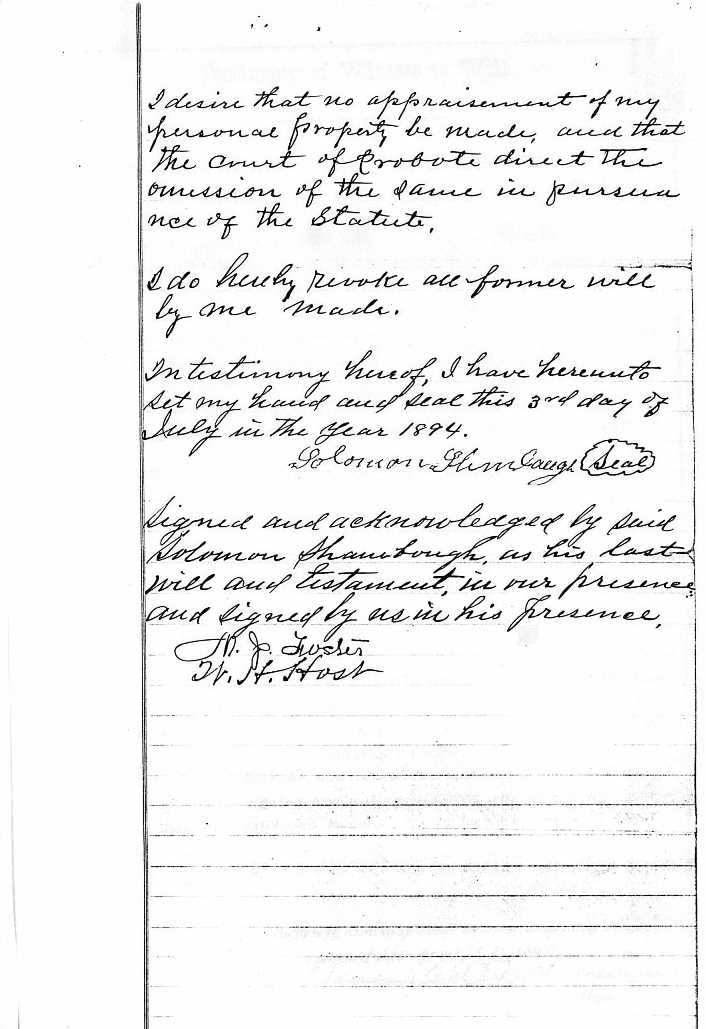 I desire that no appraisement of my
personal property be made, and that
the court of Probate direct the
omission of the same in pursua
nce of the Statute.
I do hereby revoke all former will
by me made.
In testimony hereof, I have hereunto
set my hand and seal this 3rd day of
July in the year 1894.
Solomon Seal
Signed and acknowledged by said
Solomon Shambough, as his last
will and testament, in our presence
and signed by us in his presence,
W. H. Host